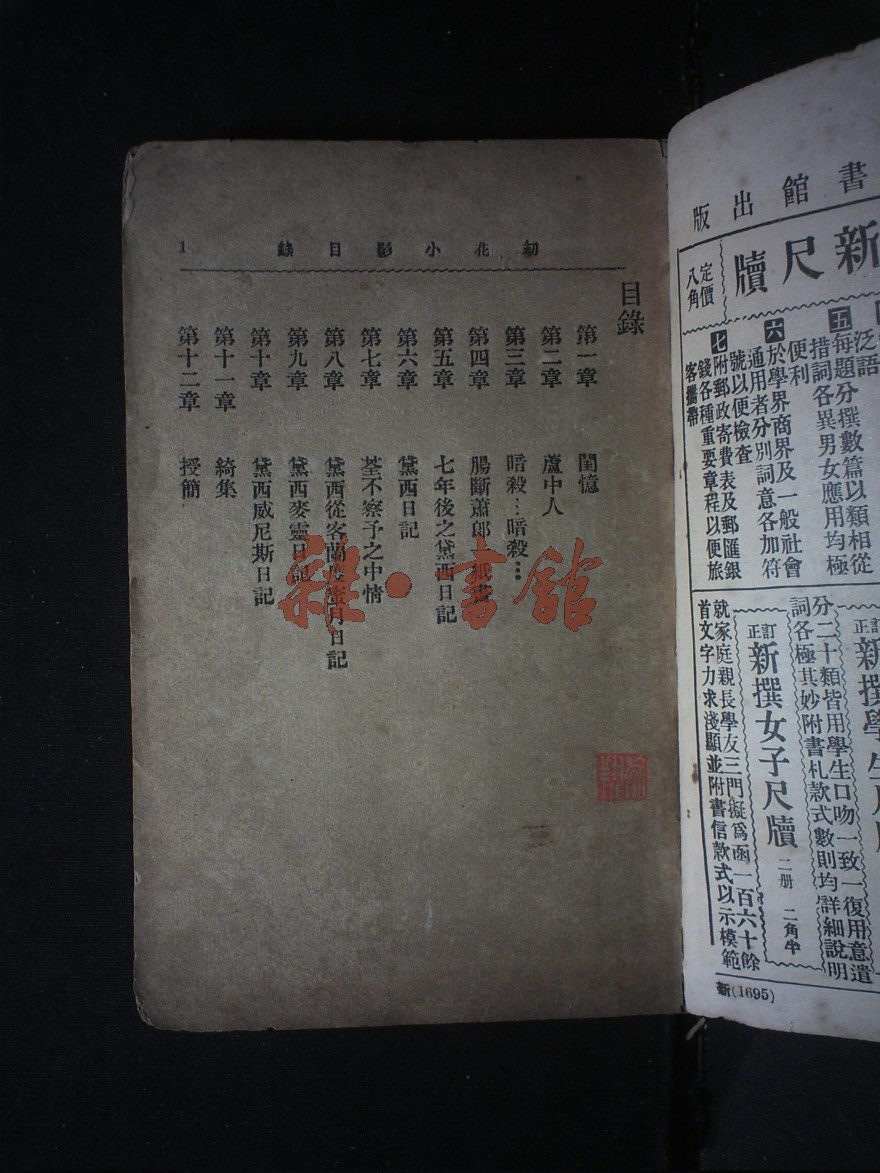 書館出版
新尺牘
定價
八角
泛語
五每題分撰數篇以類相從
措詞各異男女應用均極
便利
六於學界商界及一般社會
通用者分別詞意各加符
號以便檢查
七附郵政寄費表及郵匯銀
錢各種重要章程以便旅
客攜帶
訂正
新撰學生尺牘
分二十類皆用學生口吻一致一復用意遣
詞各極其妙附書札款式數則均詳細說明
訂正
新撰女子尺牘
二册 二角半
就家庭親長學友三門擬爲函一百六十餘
首文字力求淺顯並附書信款式以示模範
新(1695)
幻花小影目錄 1
目錄
第一章 閨憶
第二章 蘆中人
第三章 暗殺…暗殺…
第四章 腸斷蕭郎一紙書
第五章 七年後之黛西日記
第六章 黛西日記
第七章 荃不察予之中情
第八章 黛西從客蘭度蜜月日記
第九章 黛西麥靈日記
第十章 黛西威尼斯日記
第十一章 綺集
第十二章 授簡
雜·書館